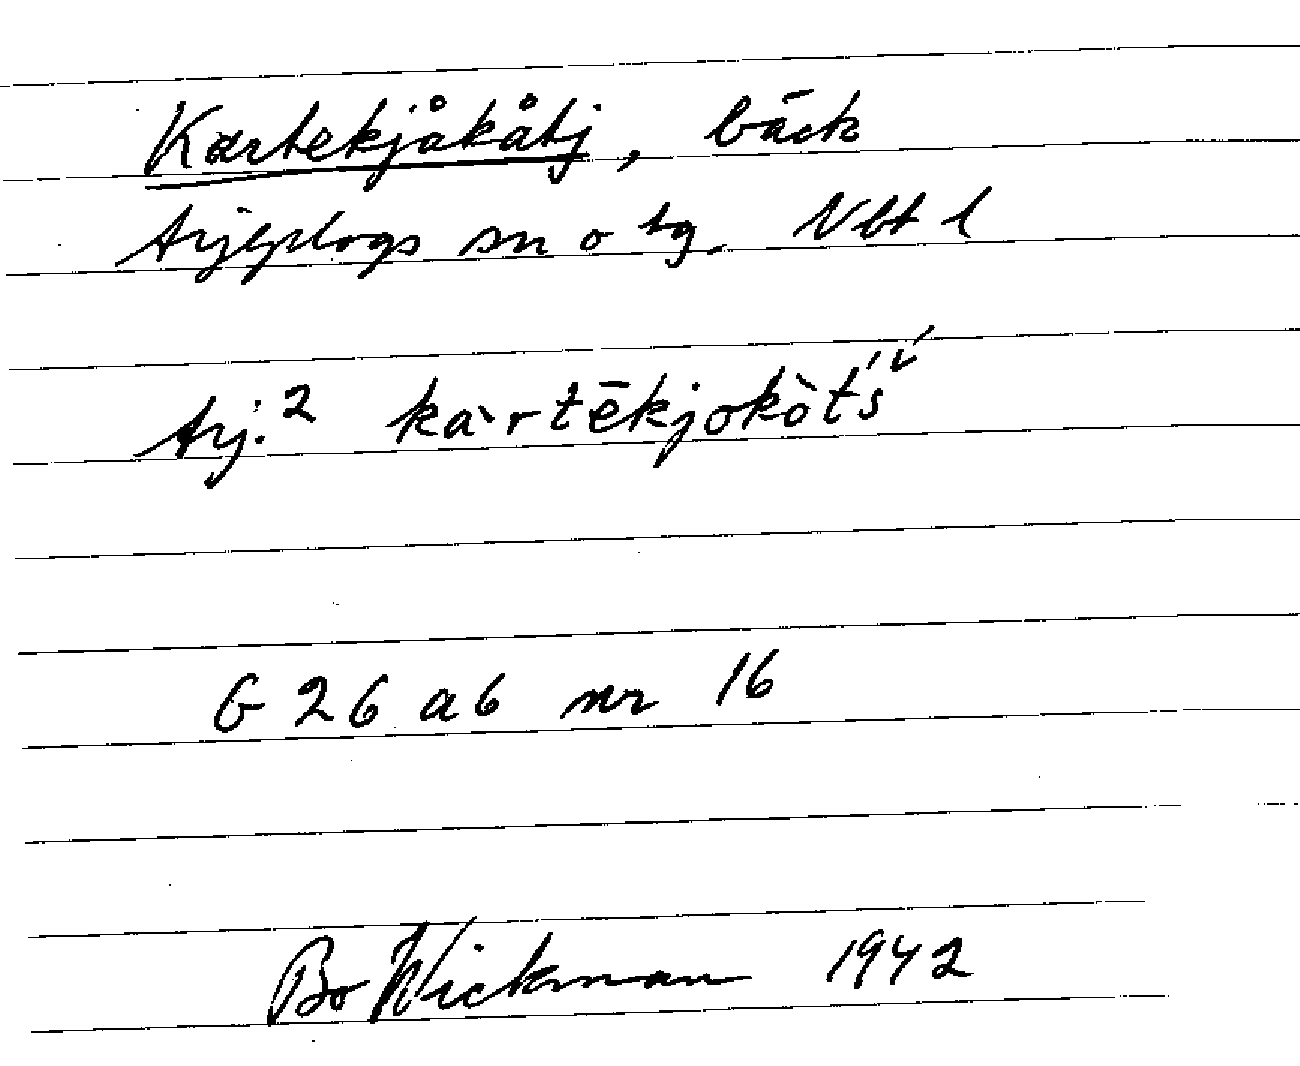 Kartekjåkåtj, bäck
Arjeplogs sn o tg. Vbt l
Arj.² kàrtēkjokòt́śv́
G 26 a b nr 16
Bo Wickman 1942